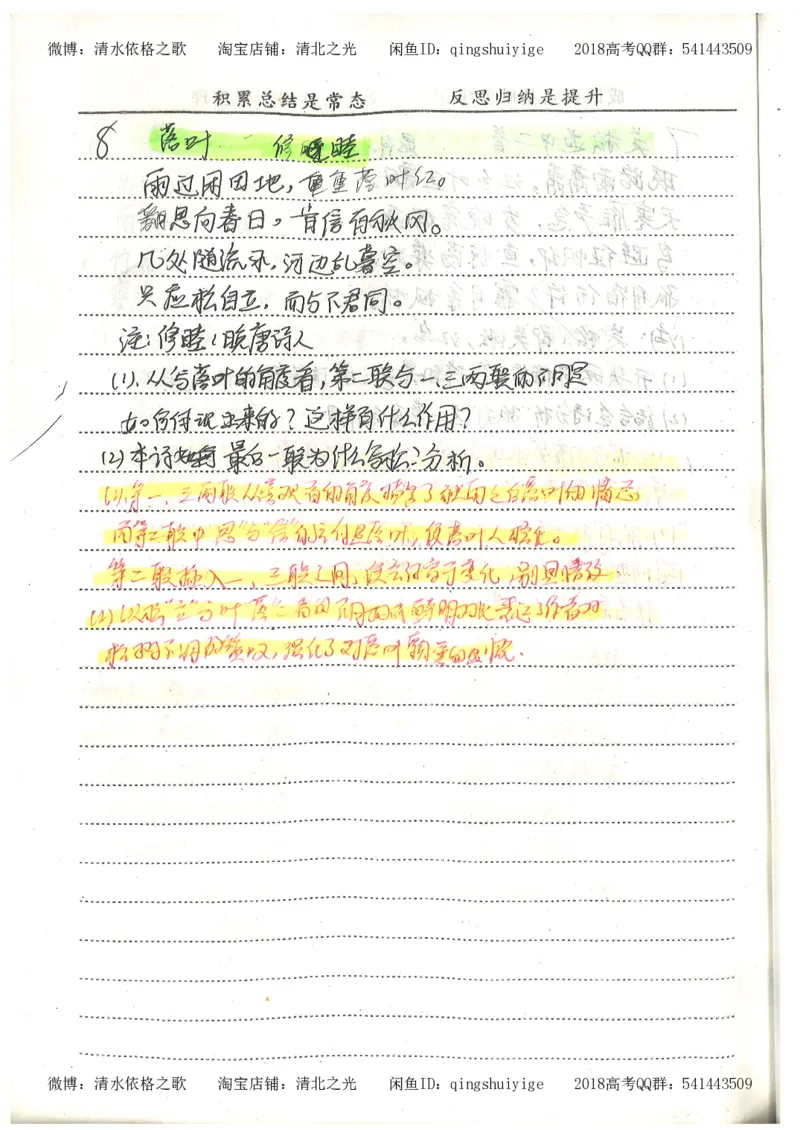 微博：清水依格之歌 淘宝店铺：清北之光 闲鱼ID：qingshuiyige 2018高考QQ群：541443509
积累总结是常态 反思归纳是提升
8 落叶 修睦
雨过闲田地，重重落叶红。
翻思向春日，肯信有秋风。
几处随流水，河边乱暮空。
只应松自立，而与不君同。
注：修睦：晚唐诗人
(1).从写落叶的角度看，第二联与一、三两联的不同是
如何体现出来的？这样有什么作用？
(2)本诗 最后一联为什么写松？分析。
(1).第一、三两联从 的角度描写了秋雨之后落叶的情态
而第二联中"思"与"信"的 ，使落叶人格化。
第二联插入一、三联之间，使 富于变化，别具情致
(2)以松"立"与叶"落" 不同 鲜明对比表达了作者对
松树不 的赞叹，强化了对落叶 。
微博：清水依格之歌 淘宝店铺：清北之光 闲鱼ID：qingshuiyige 2018高考QQ群：541443509